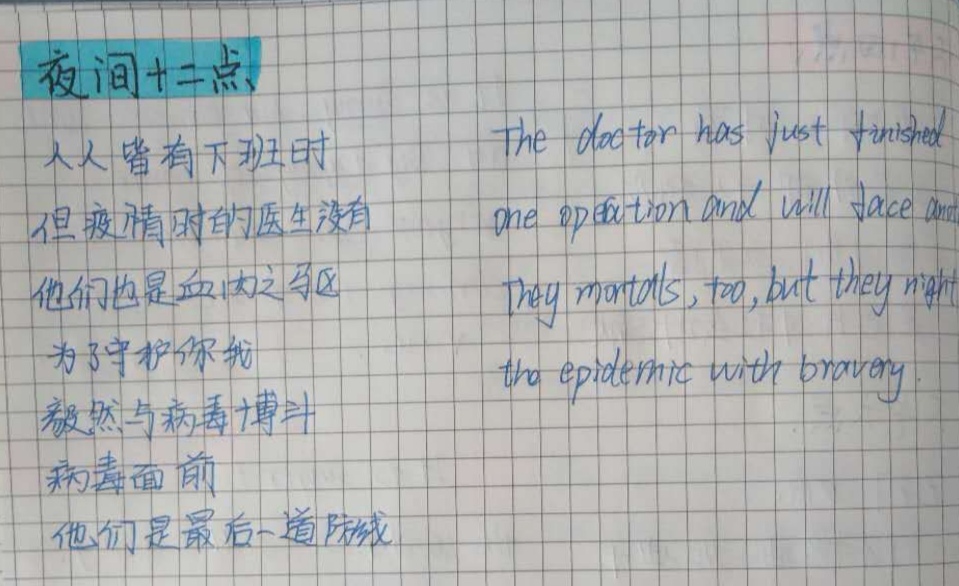 夜间十二点
人人皆有下班时
但疫情时的医生没有
他们也是血肉之躯
为了守护你我
毅然与病毒博斗
病毒面前
他们是最后一道防线
The doctor has just finished
one operation and will face
They mortals, too, but they night
the epidemic with bravery.